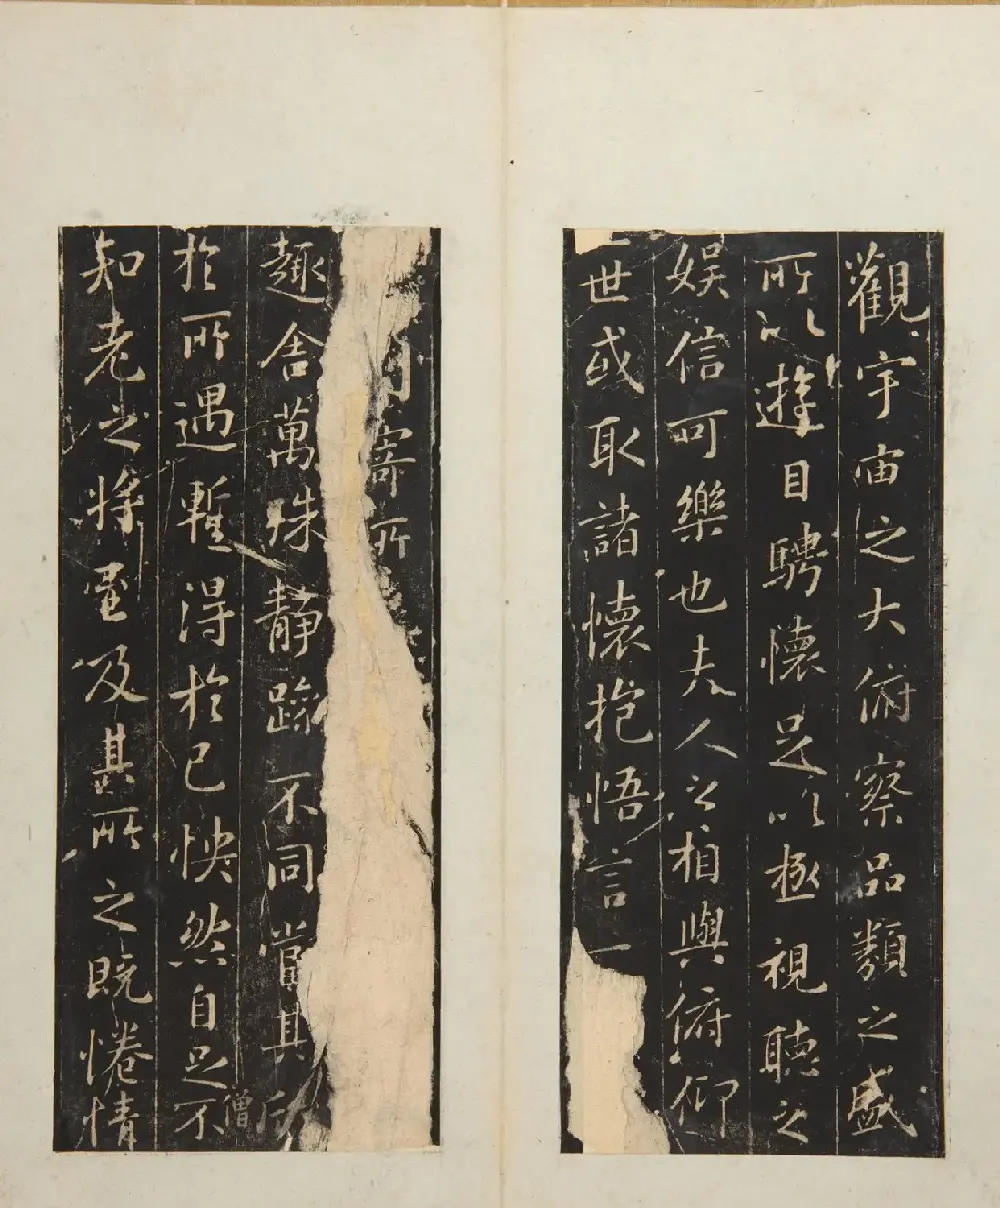 觀宇宙之大俯察品類之盛
所以遊目騁懷足以極視聽之
娛信可樂也夫人之相與俯仰
世或取諸懷抱悟言一
寄所
趣舍萬殊靜躁不同當其欣
於所遇暫得於己怏然自足不
僧
知老之將至及其所之既惓情